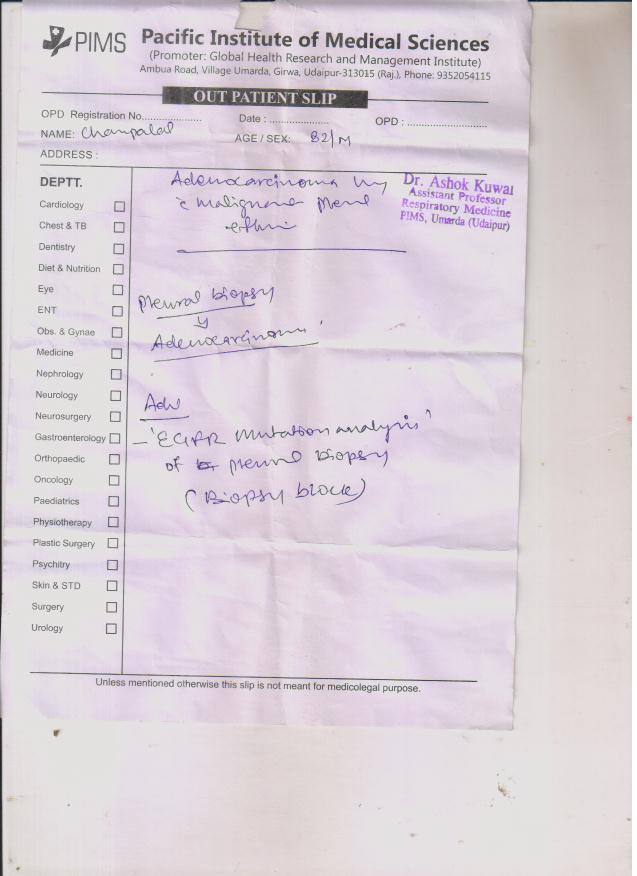 PIMS
Pacific Institute of Medical Sciences
(Promoter: Global Health Research and Management Institute)
Ambua Road, Village Umarda, Girwa, Udaipur-313015 (Raj.), Phone: 9352054115
OUT PATIENT SLIP
OPD Registration No.................... Date : .................... OPD : ............................
NAME: Champalal AGE / SEX: 82/M
ADDRESS :
Dr. Ashok Kuwal
Assistant Professor
Respiratory Medicine
PIMS, Umarda (Udaipur)
Adenocarcinoma
c malignant
DEPTT.
Cardiology
Chest & TB
Dentistry
Diet & Nutrition
Eye
ENT
Obs. & Gynae
Medicine
Nephrology
Neurology
Neurosurgery
Gastroenterology
Orthopaedic
Oncology
Paediatrics
Physiotherapy
Plastic Surgery
Psychitry
Skin & STD
Surgery
Urology
Pleural biopsy
Adenocarcinoma
Adv
- 'EGFR Mutation analysis'
of pleural biopsy
(Biopsy block)
Unless mentioned otherwise this slip is not meant for medicolegal purpose.